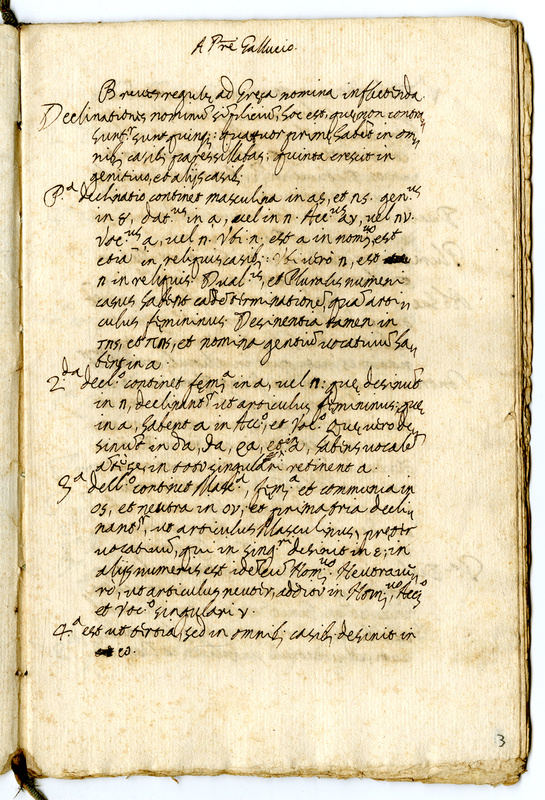 A Pre Gallucio.
Breves regulę ad Gręca nomina inflectenda.
Declinationes nominũ simpliciũ, hoc est, quę non contra
hunt.r sunt quinq; : quatuor primę habẽt in om
nib; casib; pares syllabas; quinta crescit in
genitivo, et alijs casib;
P.a declinatio continet masculina in ας, et ης. gen.us
in ȣ, dat.us in α, vel in η. Acc.us αν, vel ην.
Voc.us α, vel η. Vbi η, est α in nom.uo, est
etiã in reliquis casib; : Vbi verò η, est
η in reliquis. Dual.is, et Pluralis numeri
casus habent eãdẽ terminationẽ, quã arti
culus femininus. Desinentia tamen in
της, et πης, et nomina gentiũ vocativũ ha
bent in α.
2.da decl.o continet fem.a in α, vel η: quę desinũt
in η, declinant.r ut articulus femininus; quę
in α, habent α in Acc.o, et Voc.o Quę verò de
sinũt in δα, θα, ρα, et α, habens vocalẽ
ante se, in toto singulari retinent α.
3.a decl.o continet Masc.a, fem.a et communia in
ος, et neutra in ον, et prima tria decli
nant.r, ut articulus Masculinus, pręter
vocativũ, qui in sing.ri desinit in ε; in
alijs numeris est idẽ cũ Nom.uo. Neutra ve
rò, ut articulus neuter, addito ν in Nom.uo, Acc.o
et Voc.o singulari ν.
4.a est ut tertia, sed in omnib; casib; desinit in
ω.
3